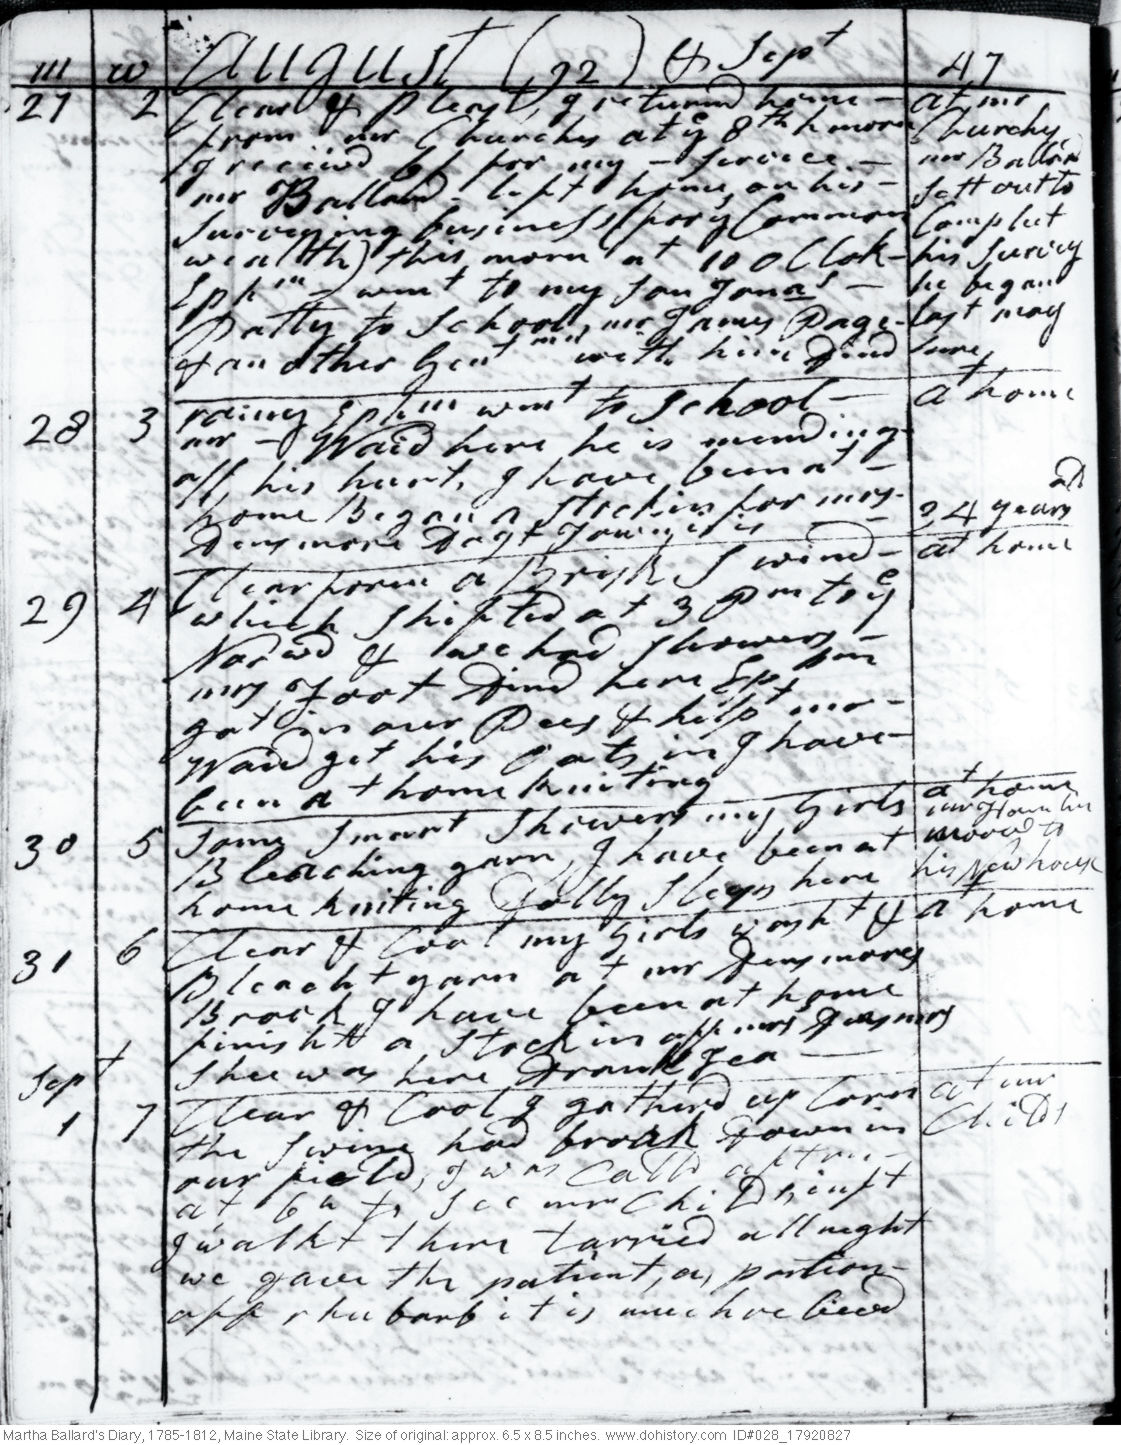 m w August (92) & Sept 47
27 2 Clear & pleast, I returnd home – at mr
from mr Churches at ye 8th h morn Churchs,
I receivd 6/ for my – service – mr Ballard
mr Ballard – left home, on his – sett out to
surveying business (for ye Common Complet
wealth) this morn at 10 o Clok – his survey
Ephm – went to my son Jonas – he began
Patty to School, mr James Page – last may
& another Gentmn with him Dind here,
28 3 rainy Ephm went to School – at home
mr – Waid here he is mending
off, his hurt, I have been at –
home Began a Stockin for mrs – 24 years
Densmore Dagt is
29 4 Clear forn a Brisk S wind – at home
which Shifted at 3 pm to ye
Norwd & we had Showers –
mrs Foot Dind here Ephm
got in our Pees & helpt mr –
Waid get his Oats in I have
been at home kniting
30 5 some smart Showers my Girls at home
Bleaching yarn, I have been at moovd to
home kniting Polly Sleeps here his New house
31 6 Clear & Cool my Girls washt & at home
Bleacht yarn at mr Densmores
Brook I have been at home
finisht a Stockin off mrs Densmrs
Shee was here Drank Tea –
Sept
1 7 Clear & Cool I gatherd up Corn at mr
the Swine had broak Down in Childs
our field, I was Calld after –
at 6 h to see mr Childs inft
I walkt there tarried all night
we gave the patient, a, portion –
off rhubarb it is much relievd
Martha Ballard's Diary, 1785-1812, Maine State Library. Size of original: approx. 6.5 x 8.5 inches. www.dohistory.com ID#028_17920827